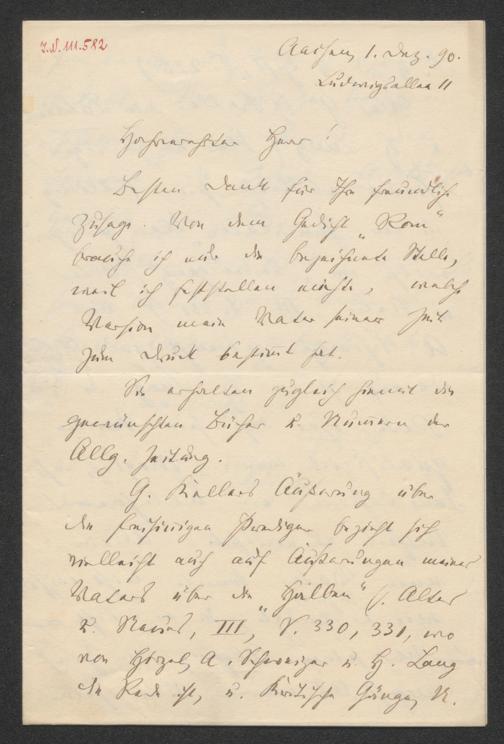 J.N. 111.582
Aachen, 1. Dez. 90.
Ludwigsallee 11
Hochverehrter Herr!
Besten Dank für Ihre freundliche
Zusage. Von dem Gedicht „Rom“
brauche ich nur die bezeichnete Stelle,
weil ich feststellen möchte, welche
Version mein Vater seiner Zeit
zum Druck bestimmt hat.
Sie erhalten zugleich hiemit die
gewünschten Bücher u. Nummern der
Allg. Zeitung.
G. Kellers Äußerung über
die freisinnigen Prediger bezieht sich
vielleicht auch auf Äußerungen meines
Vaters über die „Halben“ (s. Altes
u. Neues, III, S. 330, 331, wo
von Hirzel, A. Schweizer u. H. Lang
die Rede ist, u. Kritische Gänge, N.